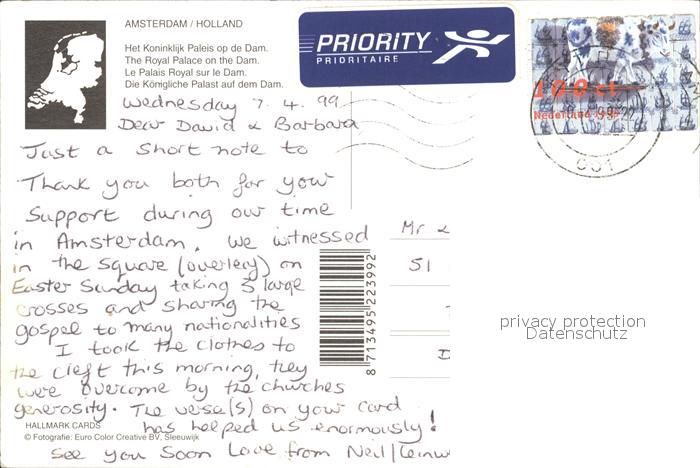 AMSTERDAM / HOLLAND
Het Koninklijk Paleis op de Dam.
The Royal Palace on the Dam.
Le Palais Royal sur le Dam.
Die Königliche Palast auf dem Dam.
PRIORITY
PRIORITAIRE
100 ct
Nederland
Wednesday 7.4.99
Dear David & Barbara
Just a short note to
Thank you both for your
support during our time
in Amsterdam. We witnessed
in the square (overleaf) on
Easter Sunday taking 3 large
crosses and sharing the
gospel to many nationalities
I took the clothes to
the cleft this morning, they
were overcome by the churches
generosity. The verse(s) on your card
has helped us enormously!
See you soon Love from Neil/
Mr &
51
8 713495 223992
HALLMARK CARDS
© Fotografie: Euro Color Creative BV, Sleeuwijk
privacy protection
Datenschutz